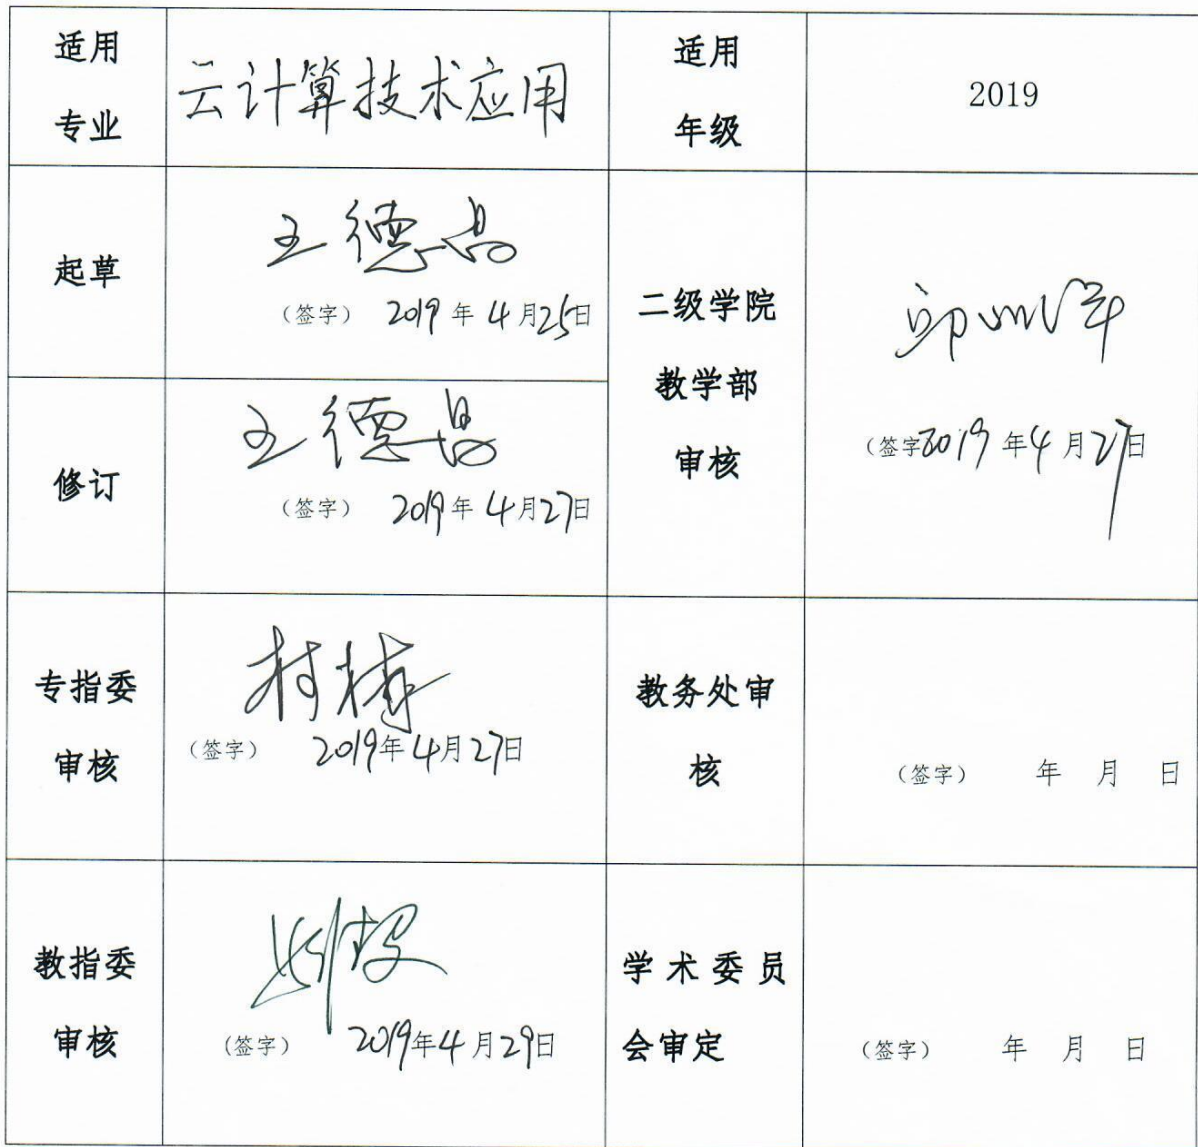 适用
专业
云计算技术应用
适用
年级
2019
起草
王德昌
(签字) 2019年4月25日
二级学院
教学部
审核
(签字) 2019年4月27日
修订
王德昌
(签字) 2019年4月27日
专指委
审核
(签字) 2019年4月27日
教务处审
核
(签字) 年 月 日
教指委
审核
(签字) 2019年4月29日
学术委员
会审定
(签字) 年 月 日